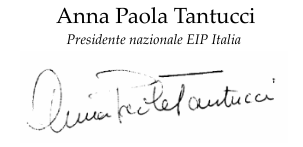 Anna Paola Tantucci
Presidente nazionale EIP Italia
Anna Paola Tantucci